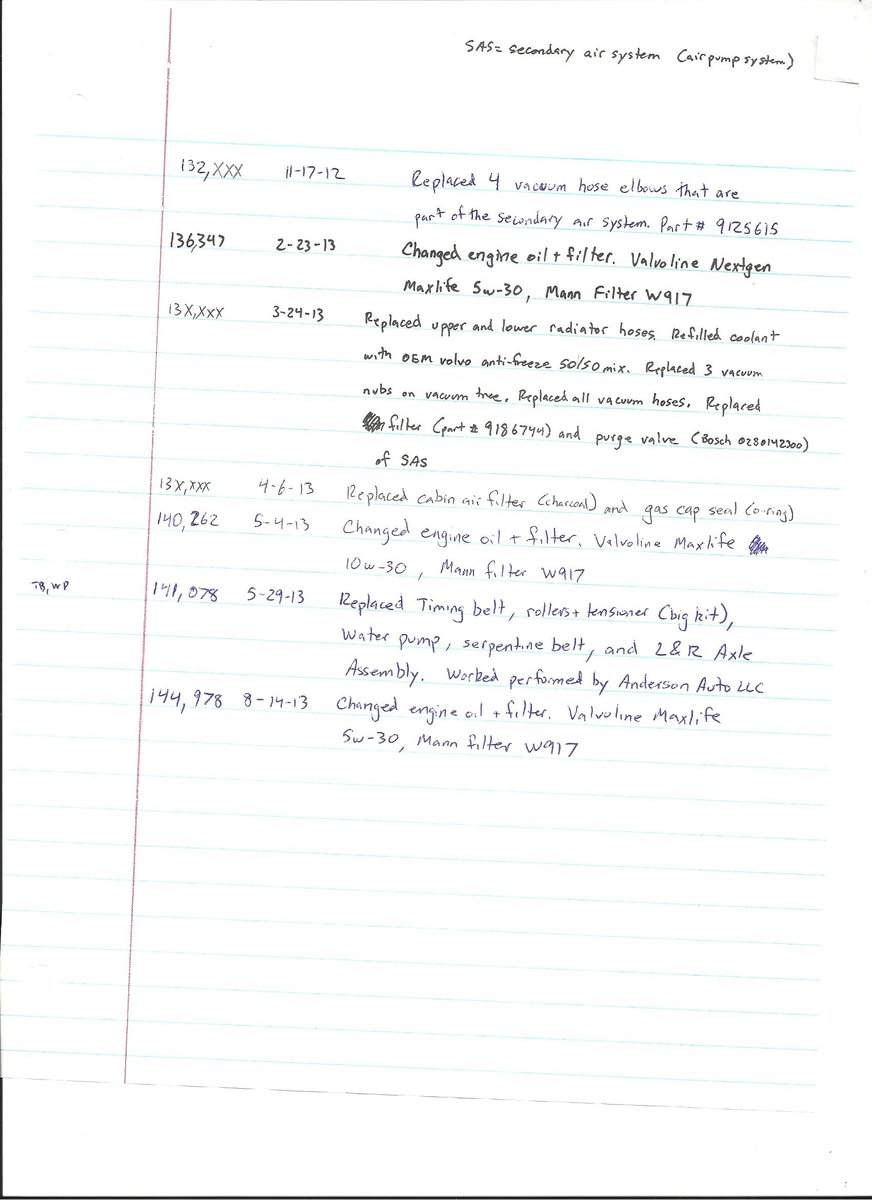 SAS= secondary air system (air pump system)
132,XXX 11-17-12 Replaced 4 vacuum hose elbows that are
part of the secondary air system. Part# 9125615
136,347 2-23-13 Changed engine oil + filter. Valvoline Nextgen
Maxlife 5w-30, Mann Filter W917
13X,XXX 3-24-13 Replaced upper and lower radiator hoses. Refilled coolant
with OEM volvo anti-freeze 50/50 mix. Replaced 3 vacuum
nubs on vacuum tree. Replaced all vacuum hoses. Replaced
filter (part # 9186744) and purge valve (Bosch 0280142300)
of SAS
13X,XXX 4-6-13 Replaced cabin air filter (charcoal) and gas cap seal (o-ring)
140,262 5-4-13 Changed engine oil + filter. Valvoline Maxlife
10w-30, Mann filter W917
TB, WP 141,078 5-29-13 Replaced Timing belt, rollers + tensioner (big kit),
Water pump, serpentine belt, and L&R Axle
Assembly. Worked performed by Anderson Auto LLC
144,978 8-14-13 Changed engine oil + filter. Valvoline Maxlife
5w-30, Mann filter W917